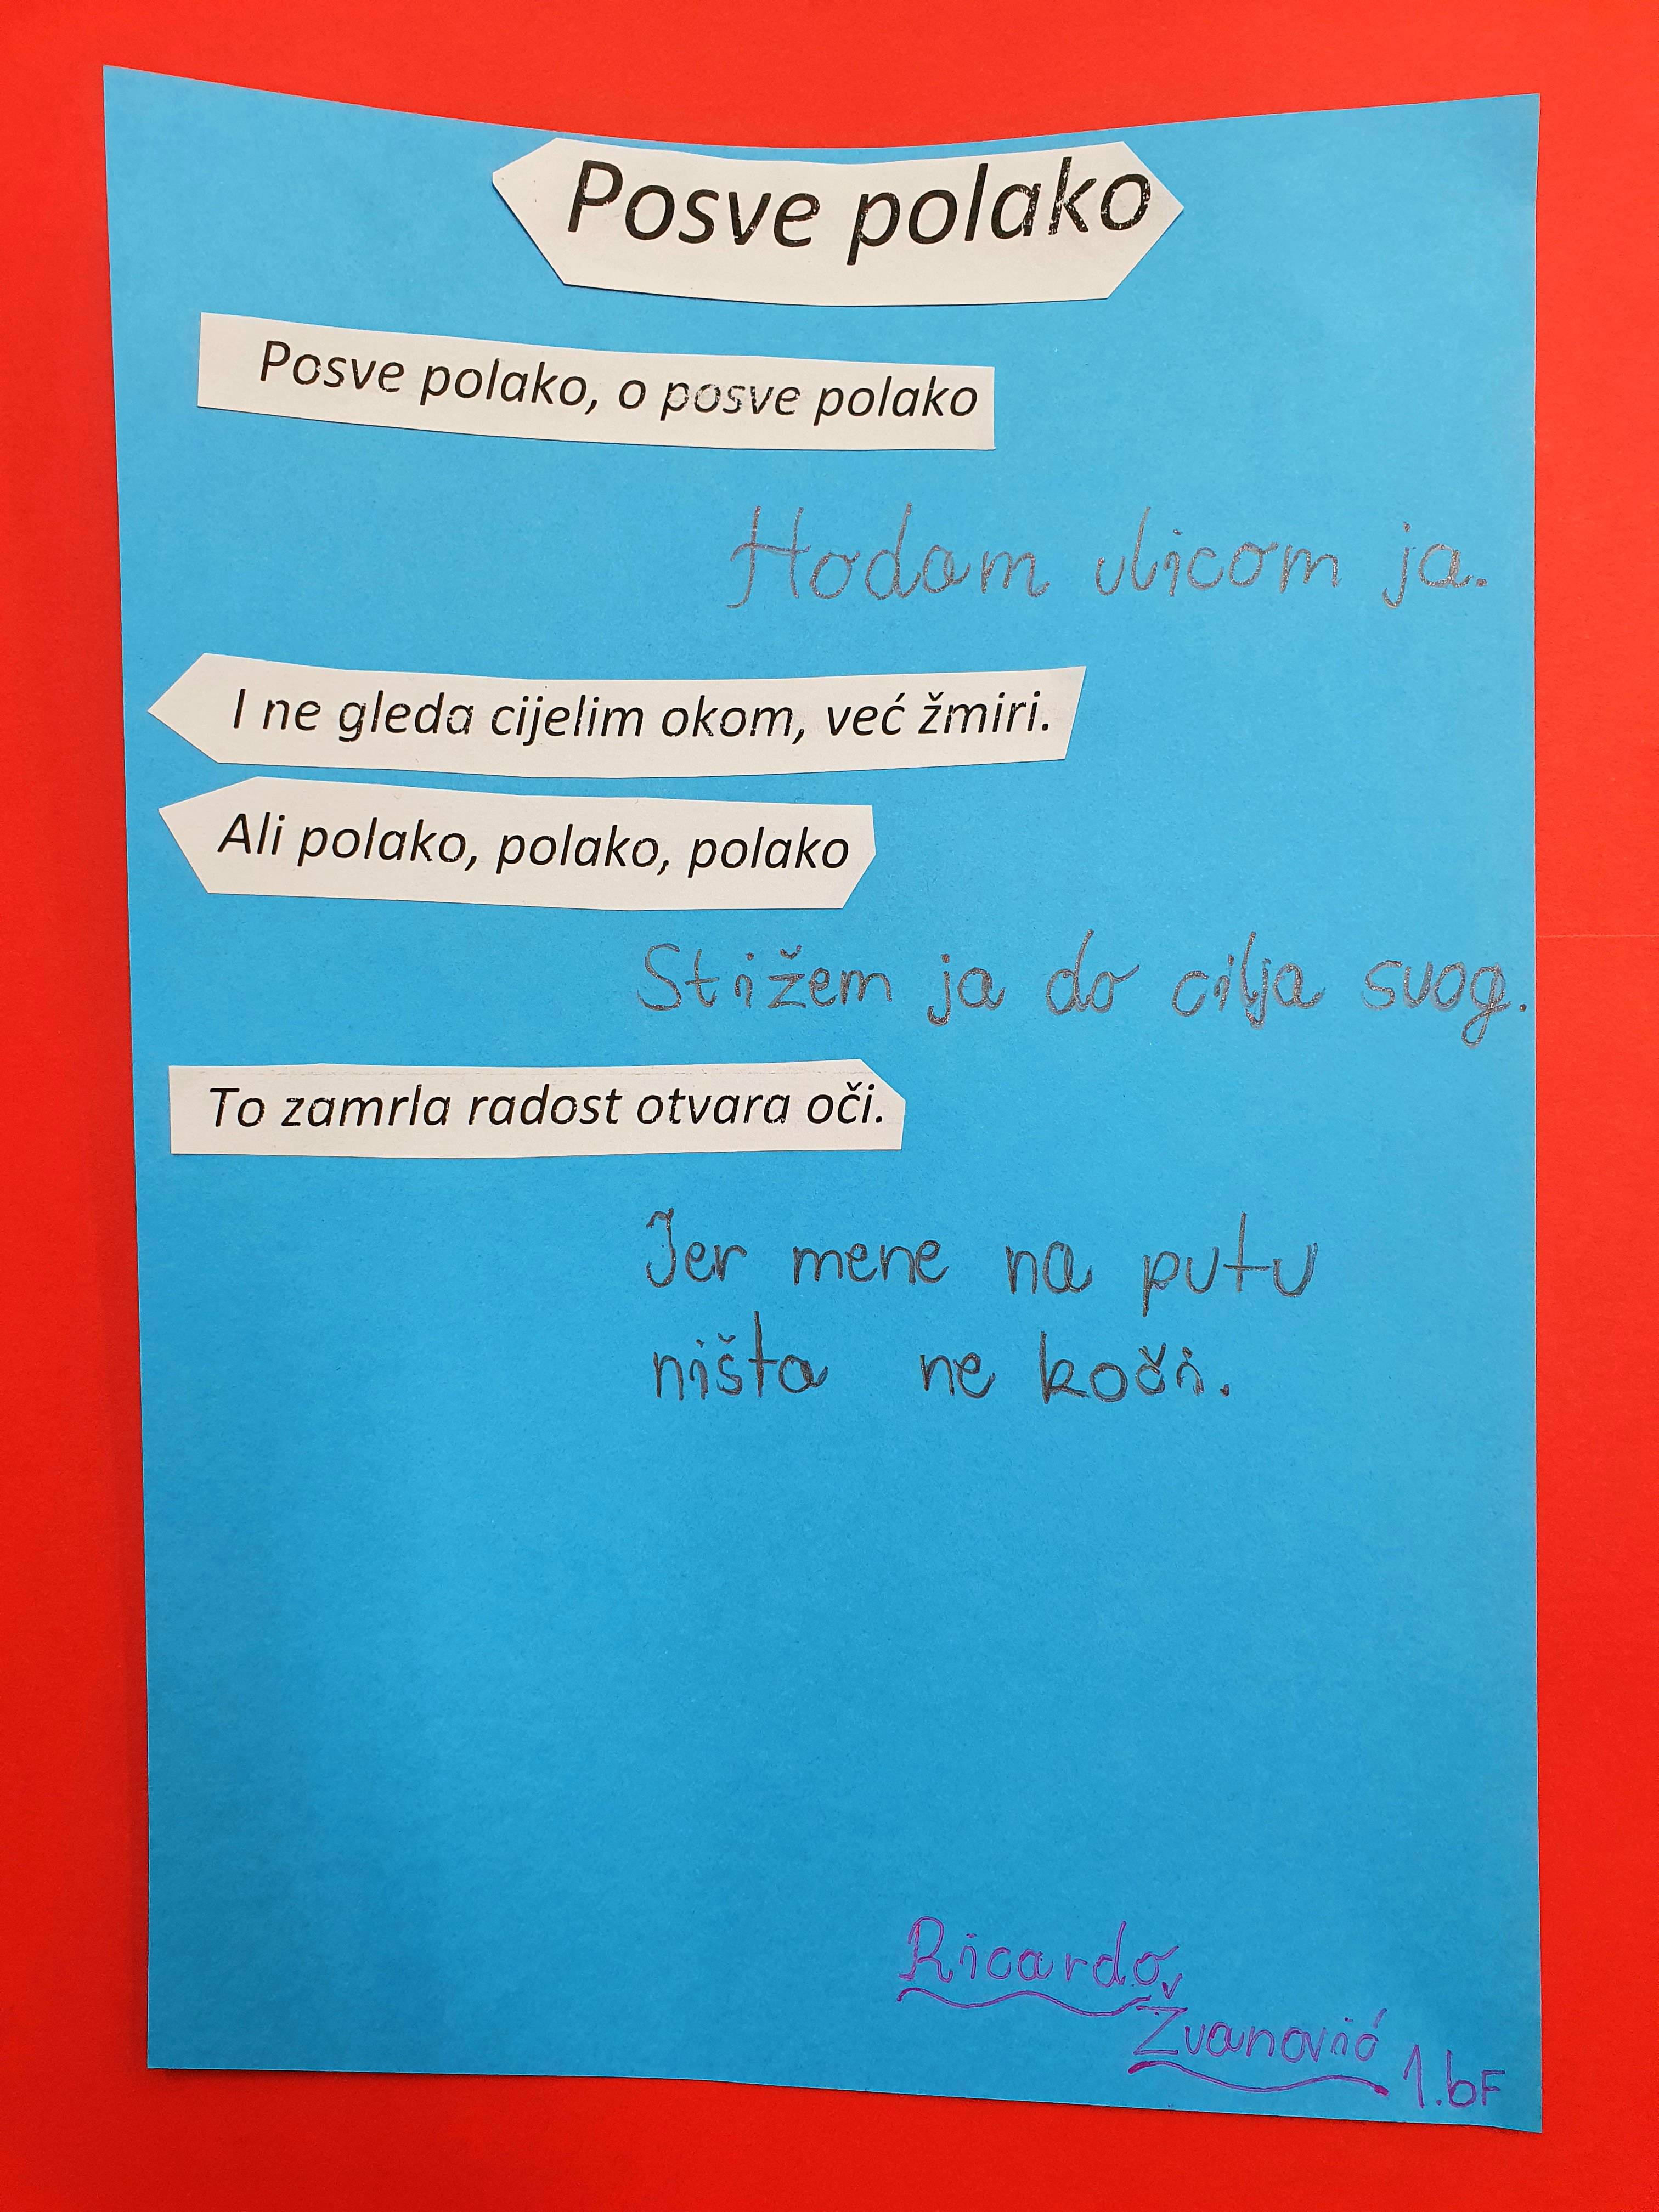 Posve polako
Posve polako, o posve polako
Hodam ulicom ja.
I ne gleda cijelim okom, već žmiri.
Ali polako, polako, polako
Stižem ja do cilja svog.
To zamrla radost otvara oči.
Jer mene na putu
ništa ne koči.
Ricardo
Žvanović 1.bF